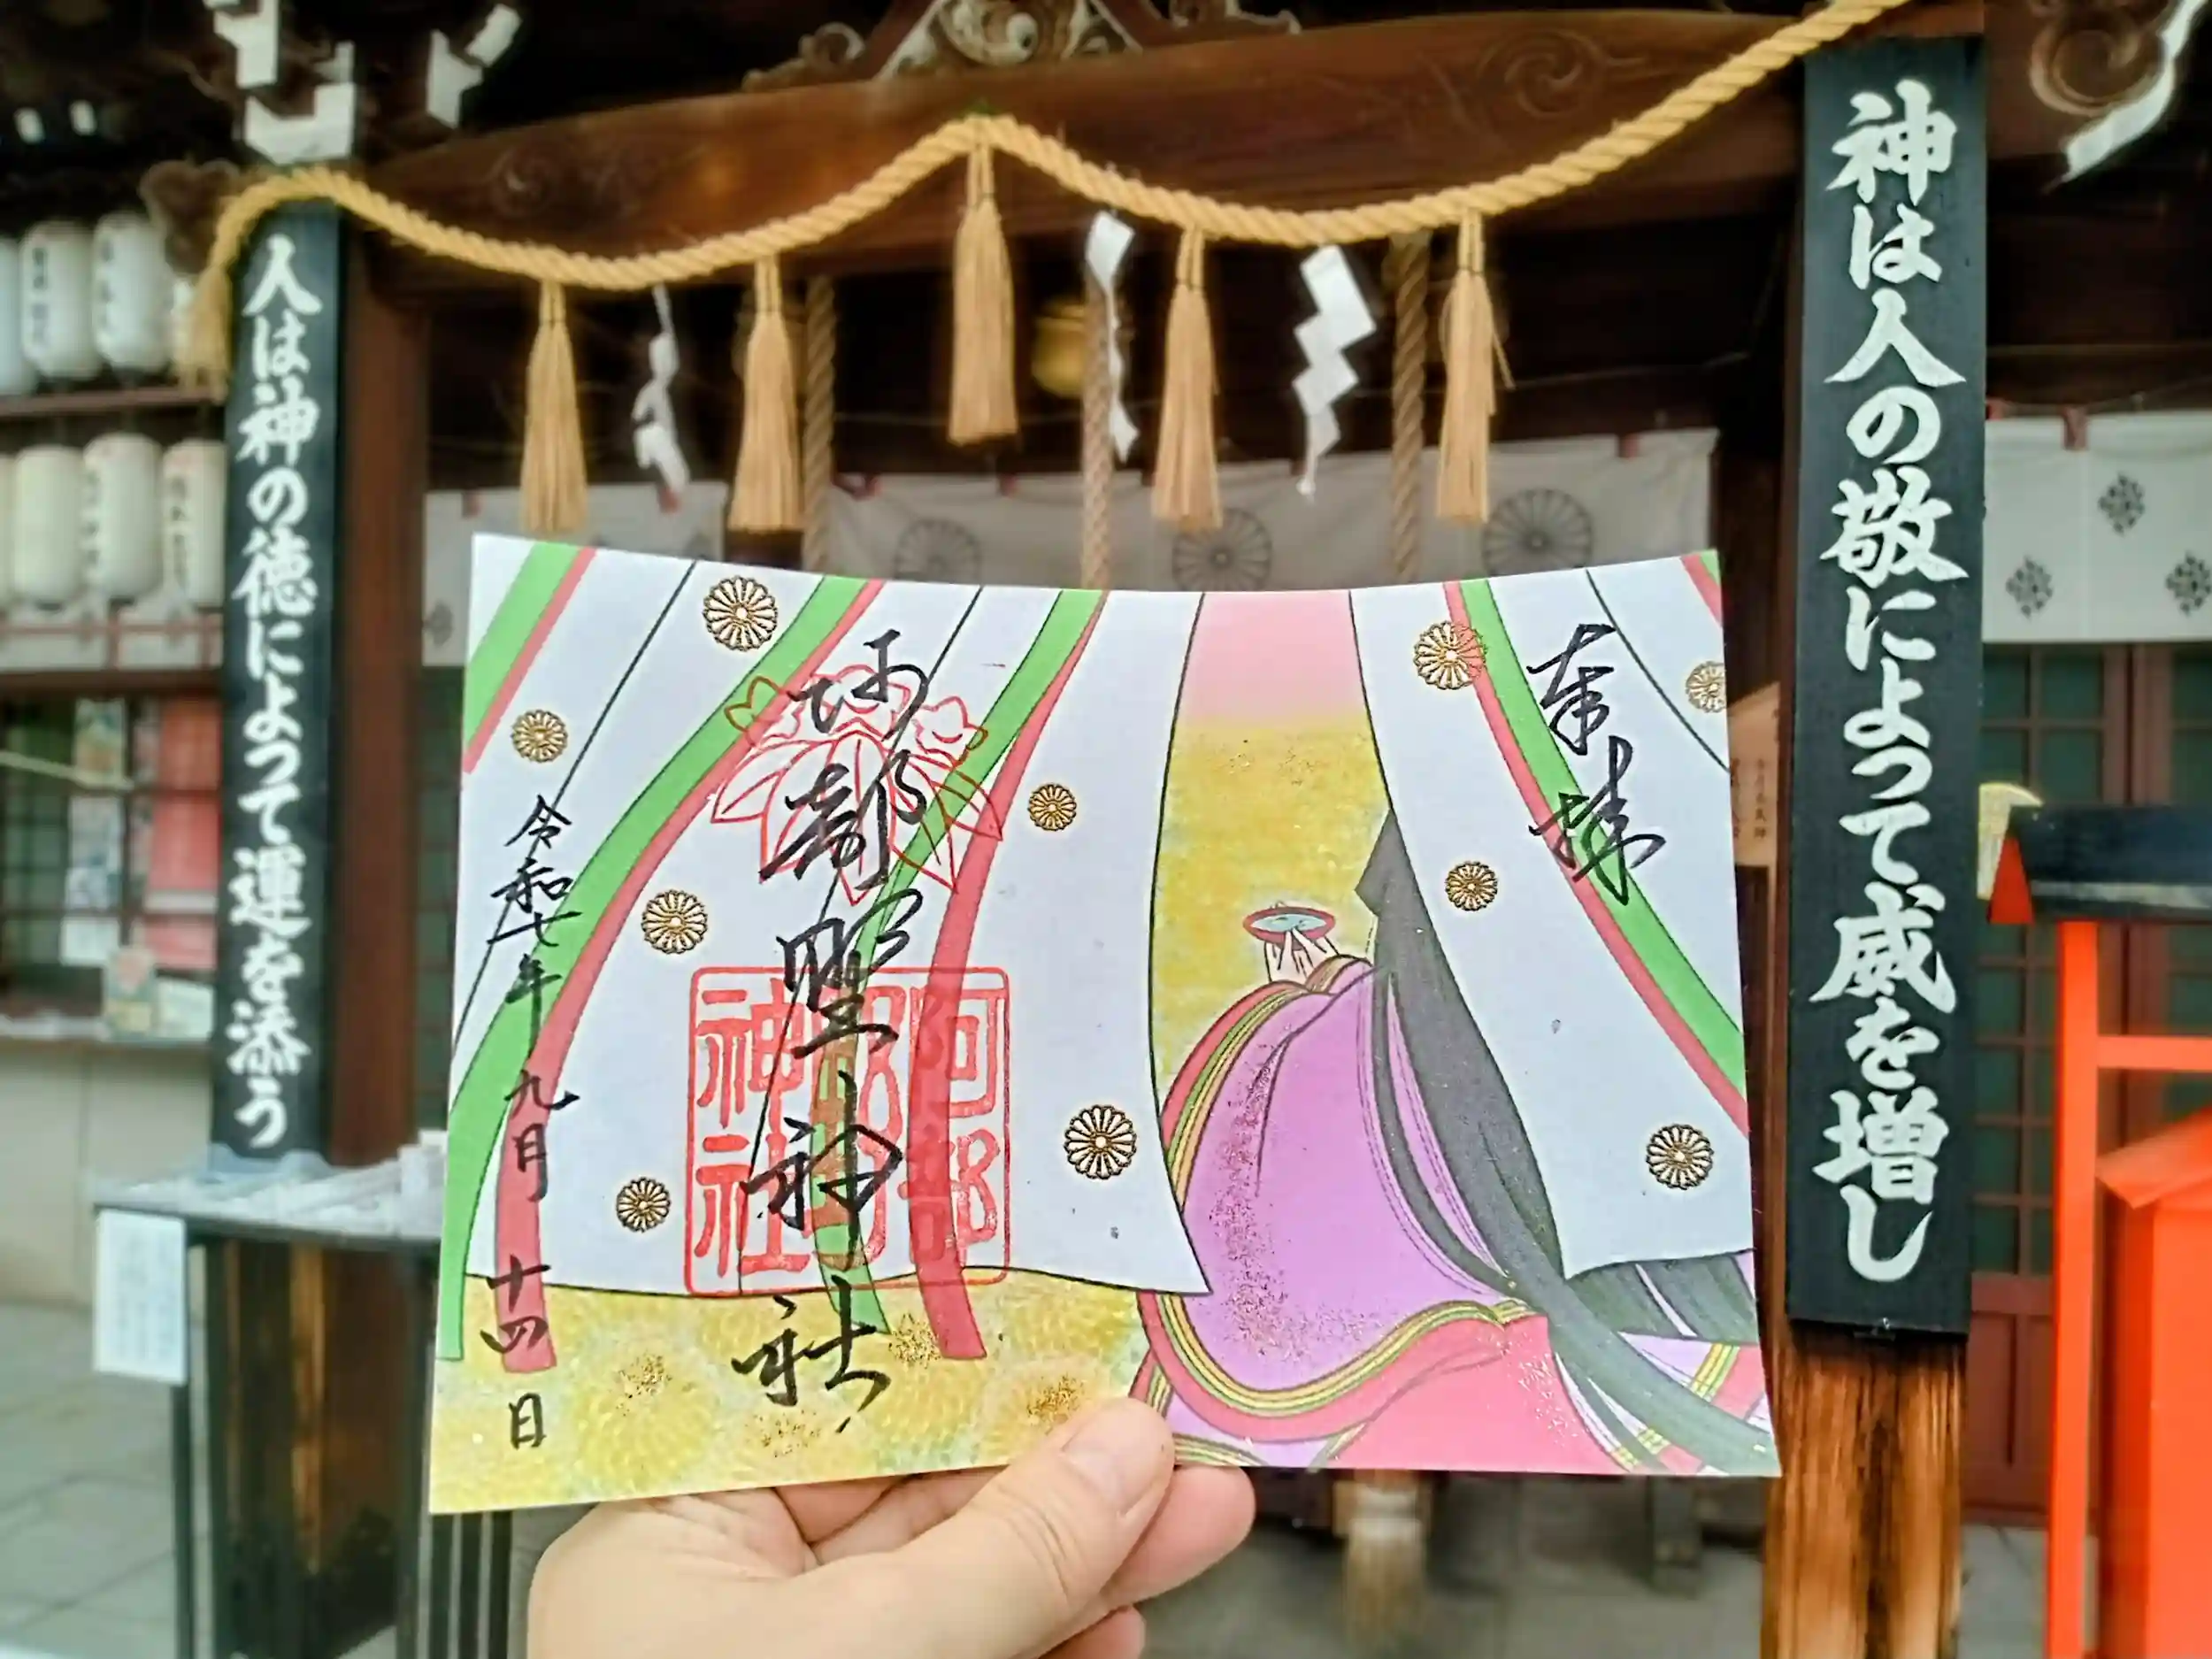 神は人の敬によって威を増し
人は神の徳によって運を添う
奉拝
阿部野神社
令和七年九月十四日
阿部
野
神社